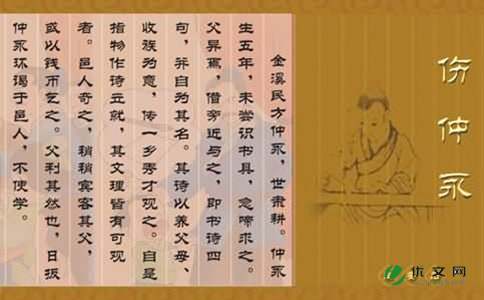 伤仲永
金溪民方仲永，世隶耕。仲永
生五年，未尝识书具，忽啼求之。
父异焉，借旁近与之，即书诗四
句，并自为其名。其诗以养父母、
收族为意，传一乡秀才观之。自是
指物作诗立就，其文理皆有可观
者。邑人奇之，稍稍宾客其父，
或以钱币乞之。父利其然也，日扳
仲永环谒于邑人，不使学。
优文网